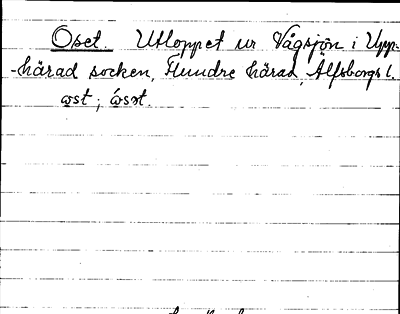 Oset. Utloppet ur Vågsjön i Upp-
-härad socken, Flundre härad, Älfsborgs l.